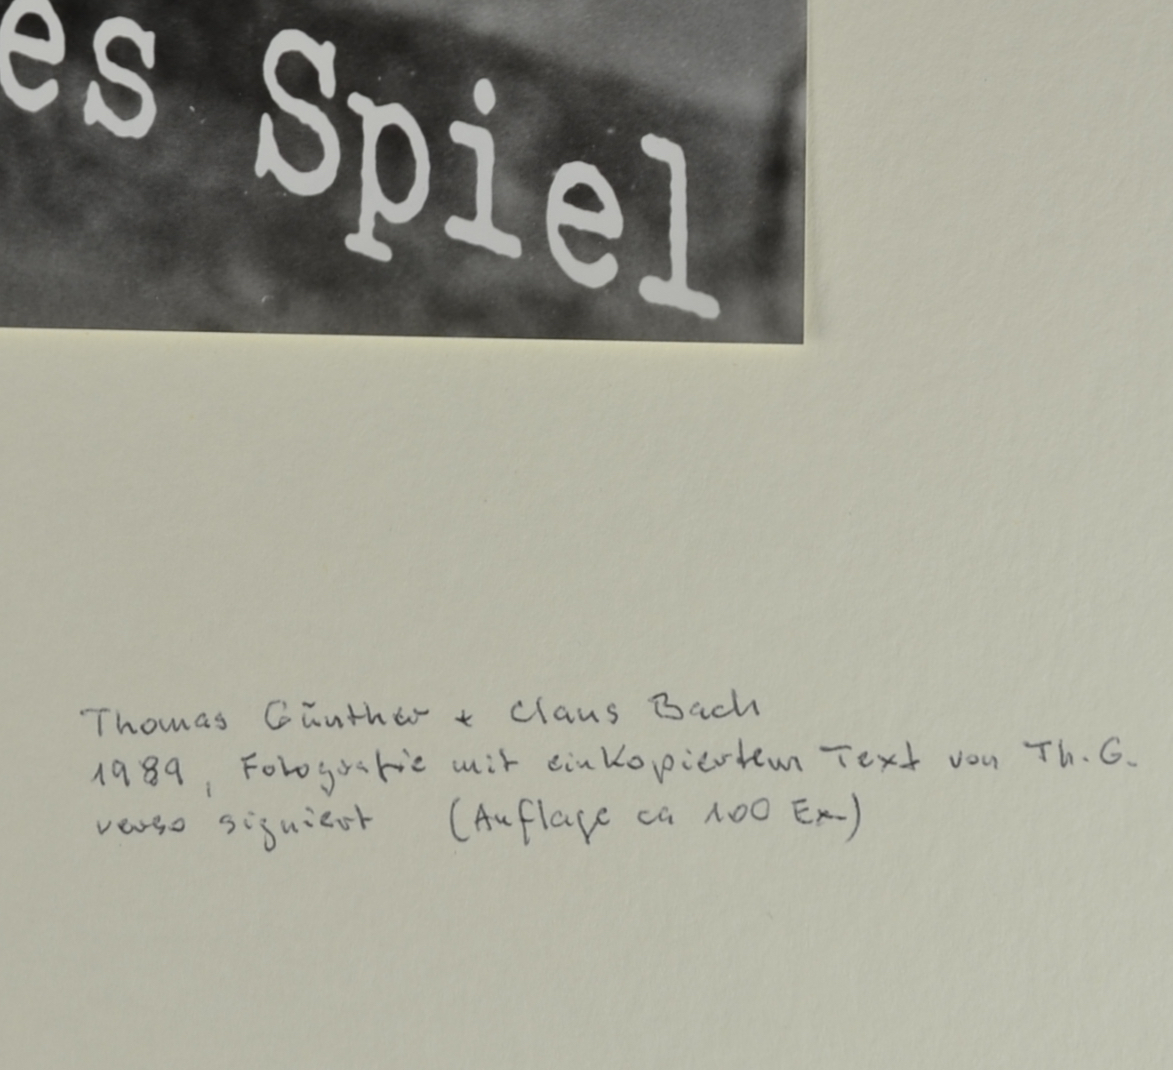 es Spiel
Thomas Günther + Claus Bach
1989, Fotografie mit einkopiertem Text von Th. G.
verso signiert (Auflage ca 100 Ex.)